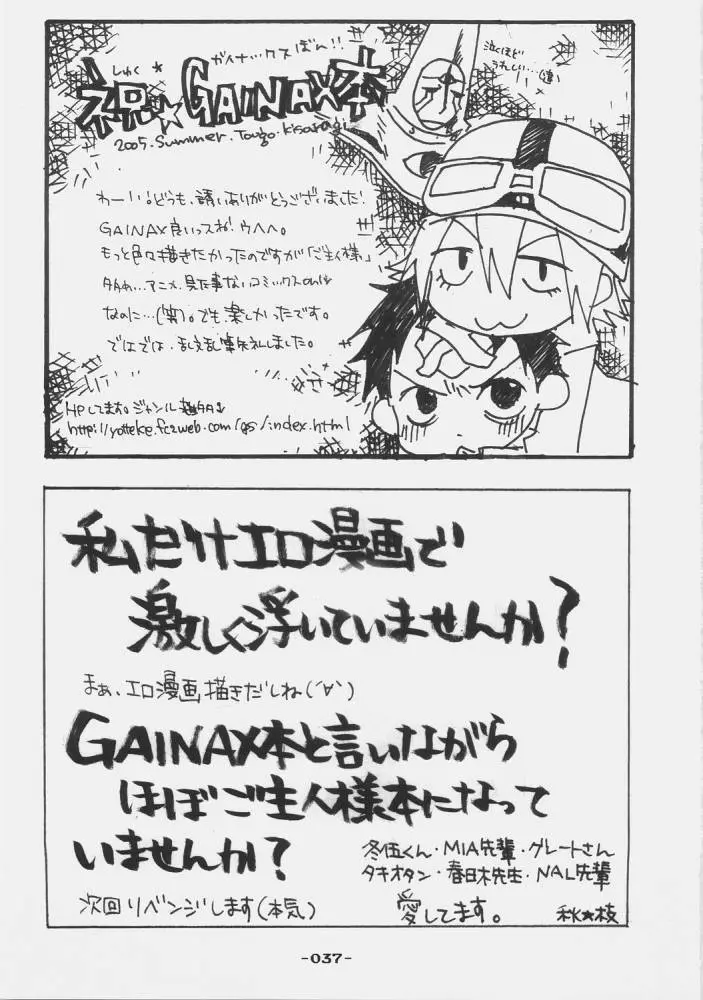 しゅく★ ガイナックスぼん!!
祝☆GAINAX本
2005.Summer.Tougo.Kisaragi
泣くほど
うれしい…
わーい!どうも、誘いありがとうございました!
GAINAX良いっスね!ウヘヘ。
もっと色々描きたかったのですが「ご主人様」
アニメ、見た事ないコミックスonly
なのに…(笑)。でも楽しかったです。
ではでは、乱文乱筆失礼しました。
HPしてます。ジャンル
http://yotteke.fc2web.com/gs/index.html
私だけエロ漫画で
激しく浮いていませんか?
まぁ、エロ漫画描きだしね(´∀`)
GAINAX本と言いながら
ほぼご主人様本になって
いませんか?
冬伍くん・MIA先輩・グレートさん
タキオタン・春日木先生・NAL先輩
次回リベンジします(本気)
愛してます。
秋★枝
-037-